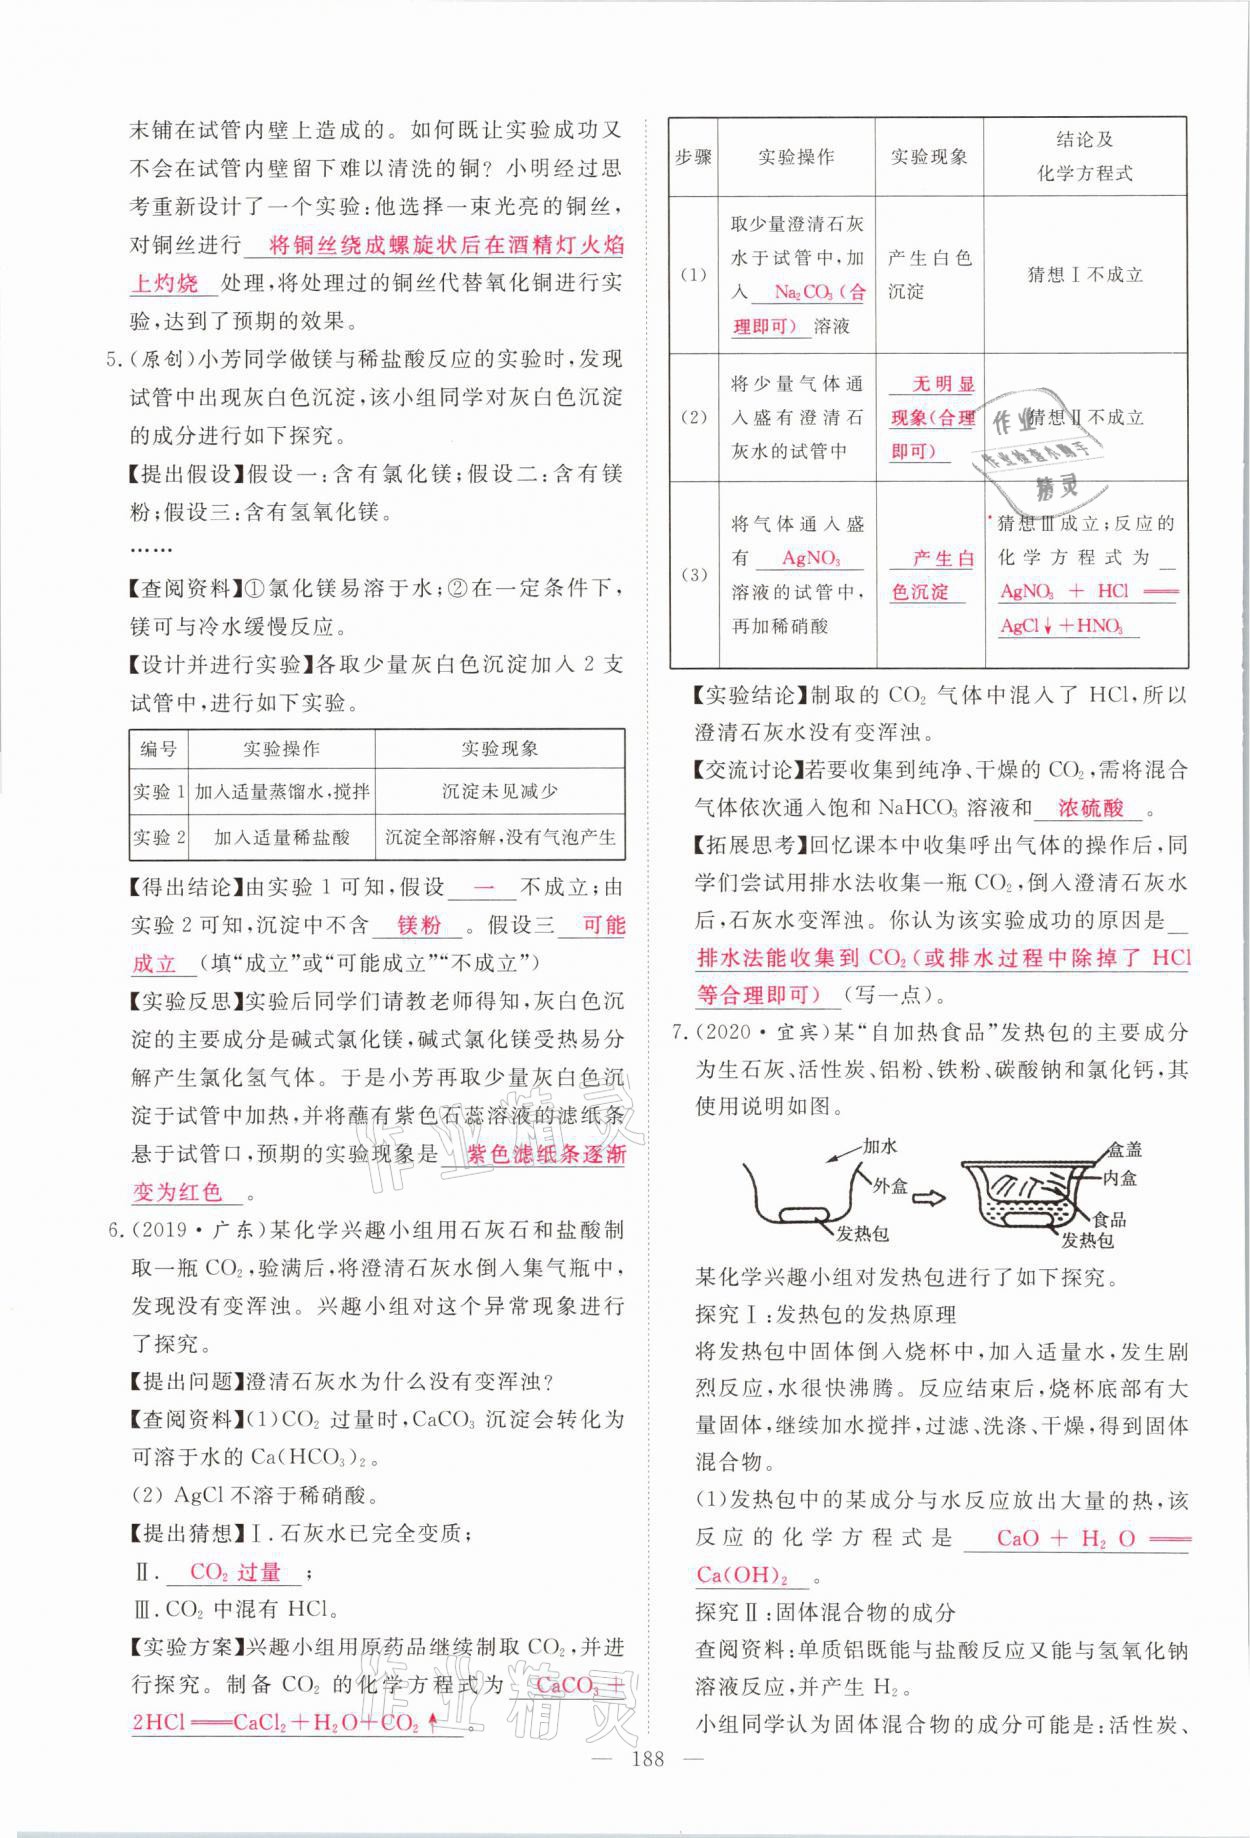 末铺在试管内壁上造成的。如何既让实验成功又
不会在试管内壁留下难以清洗的铜？小明经过思
考重新设计了一个实验：他选择一束光亮的铜丝，
对铜丝进行 将铜丝绕成螺旋状后在酒精灯火焰
上灼烧 处理，将处理过的铜丝代替氧化铜进行实
验，达到了预期的效果。
5.(原创)小芳同学做镁与稀盐酸反应的实验时，发现
试管中出现灰白色沉淀，该小组同学对灰白色沉淀
的成分进行如下探究。
【提出假设】假设一：含有氯化镁；假设二：含有镁
粉；假设三：含有氢氧化镁。
……
【查阅资料】①氯化镁易溶于水；②在一定条件下，
镁可与冷水缓慢反应。
【设计并进行实验】各取少量灰白色沉淀加入2支
试管中，进行如下实验。
编号 实验操作 实验现象
实验1 加入适量蒸馏水，搅拌 沉淀未见减少
实验2 加入适量稀盐酸 沉淀全部溶解，没有气泡产生
【得出结论】由实验1可知，假设 一 不成立；由
实验2可知，沉淀中不含 镁粉 。假设三 可能
成立 (填“成立”或“可能成立”“不成立”)
【实验反思】实验后同学们请教老师得知，灰白色沉
淀的主要成分是碱式氯化镁，碱式氯化镁受热易分
解产生氯化氢气体。于是小芳再取少量灰白色沉
淀于试管中加热，并将蘸有紫色石蕊溶液的滤纸条
悬于试管口，预期的实验现象是 紫色滤纸条逐渐
变为红色 。
6.(2019·广东)某化学兴趣小组用石灰石和盐酸制
取一瓶CO₂，验满后，将澄清石灰水倒入集气瓶中，
发现没有变浑浊。兴趣小组对这个异常现象进行
了探究。
【提出问题】澄清石灰水为什么没有变浑浊？
【查阅资料】(1)CO₂过量时，CaCO₃沉淀会转化为
可溶于水的Ca(HCO₃)₂。
(2) AgCl不溶于稀硝酸。
【提出猜想】Ⅰ.石灰水已完全变质；
Ⅱ. CO₂过量 ；
Ⅲ.CO₂中混有HCl。
【实验方案】兴趣小组用原药品继续制取CO₂，并进
行探究。制备CO₂的化学方程式为 CaCO₃+
2HCl══CaCl₂+H₂O+CO₂↑ 。
步骤 实验操作 实验现象 结论及
化学方程式
(1) 取少量澄清石灰
水于试管中，加
入 Na₂CO₃(合
理即可) 溶液 产生白色
沉淀 猜想Ⅰ不成立
(2) 将少量气体通
入盛有澄清石
灰水的试管中 无明显
现象(合理
即可) 猜想Ⅱ不成立
(3) 将气体通入盛
有 AgNO₃
溶液的试管中，
再加稀硝酸 产生白
色沉淀 猜想Ⅲ成立；反应的
化学方程式为
AgNO₃ + HCl ══
AgCl↓+HNO₃
【实验结论】制取的CO₂气体中混入了HCl，所以
澄清石灰水没有变浑浊。
【交流讨论】若要收集到纯净、干燥的CO₂，需将混合
气体依次通入饱和NaHCO₃溶液和 浓硫酸 。
【拓展思考】回忆课本中收集呼出气体的操作后，同
学们尝试用排水法收集一瓶CO₂，倒入澄清石灰水
后，石灰水变浑浊。你认为该实验成功的原因是
排水法能收集到CO₂(或排水过程中除掉了HCl
等合理即可) (写一点)。
7.(2020·宜宾)某“自加热食品”发热包的主要成分
为生石灰、活性炭、铝粉、铁粉、碳酸钠和氯化钙，其
使用说明如图。
加水
外盒
发热包
盒盖
内盒
食品
发热包
某化学兴趣小组对发热包进行了如下探究。
探究Ⅰ：发热包的发热原理
将发热包中固体倒入烧杯中，加入适量水，发生剧
烈反应，水很快沸腾。反应结束后，烧杯底部有大
量固体，继续加水搅拌，过滤、洗涤、干燥，得到固体
混合物。
(1)发热包中的某成分与水反应放出大量的热，该
反应的化学方程式是 CaO + H₂O ══
Ca(OH)₂ 。
探究Ⅱ：固体混合物的成分
查阅资料：单质铝既能与盐酸反应又能与氢氧化钠
溶液反应，并产生H₂。
小组同学认为固体混合物的成分可能是：活性炭、
— 188 —
作业
作业检查小助手
精灵
作业精灵
作业精灵